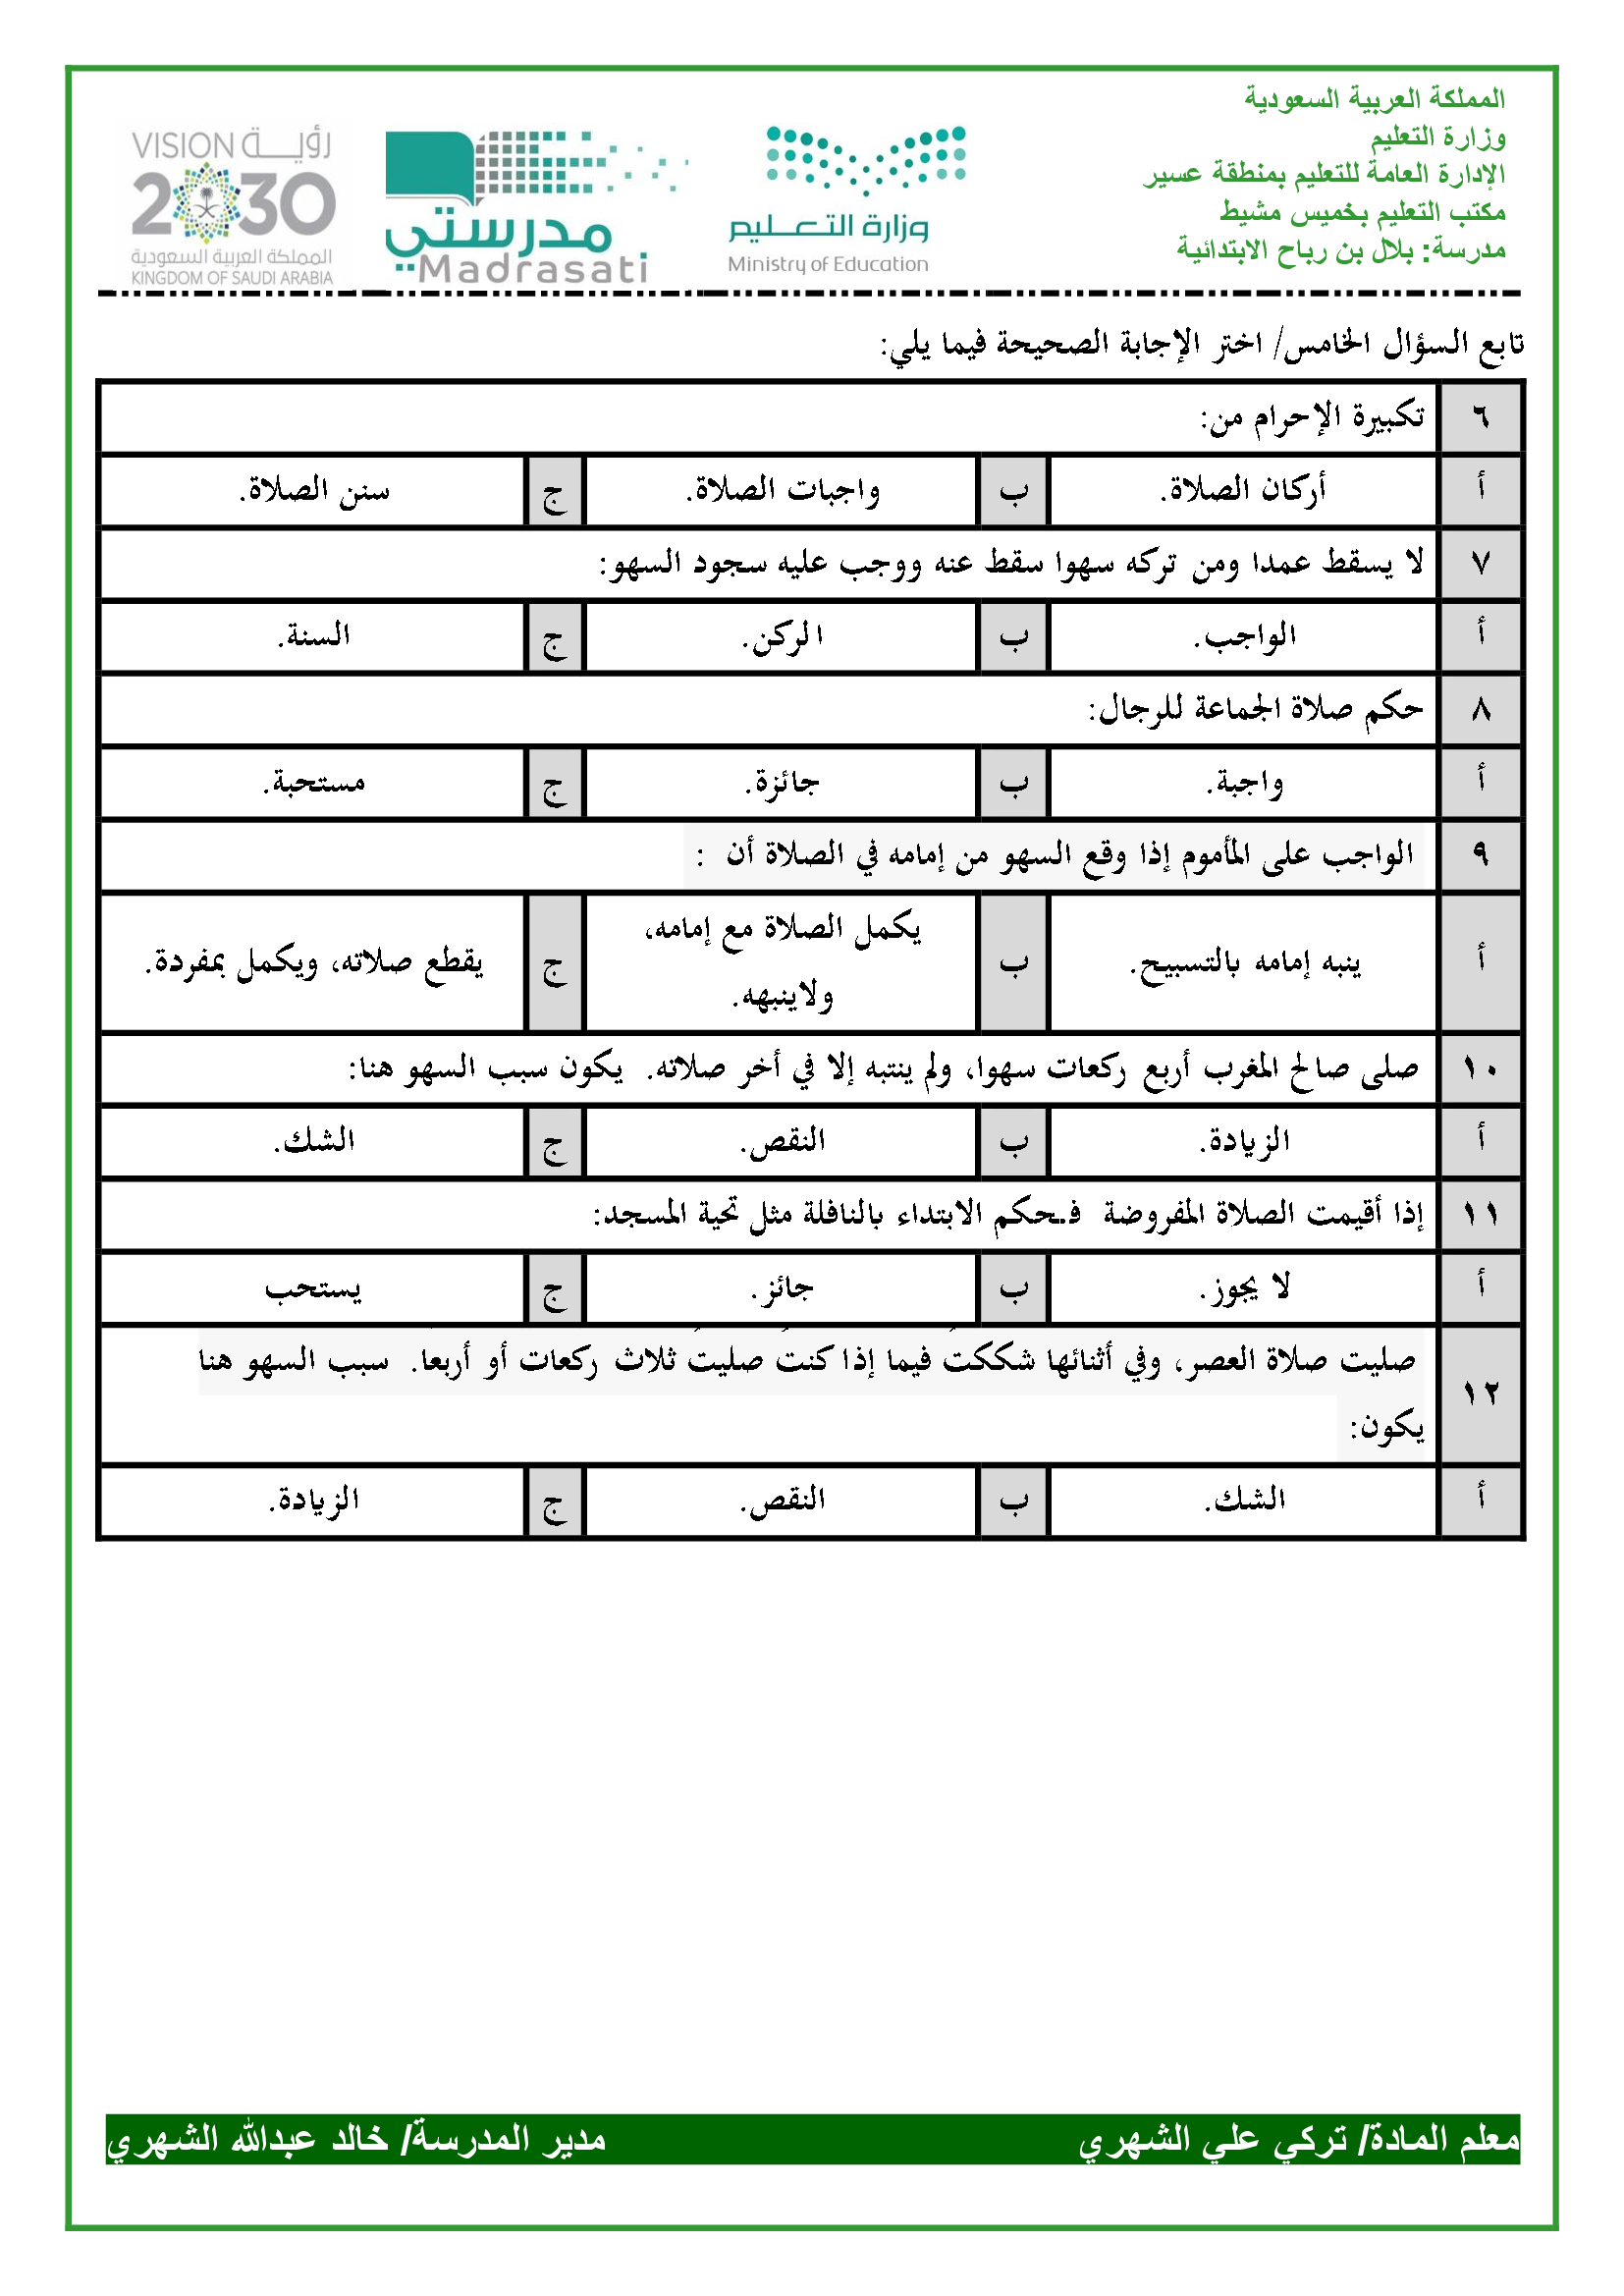 المملكة العربية السعودية
وزارة التعليم
الإدارة العامة للتعليم بمنطقة عسير
مكتب التعليم بخميس مشيط
مدرسة: بلال بن رباح الابتدائية
وزارة التعـــليم
Ministry of Education
مدرستي
Madrasati
VISION رؤيـــة
2030
المملكة العربية السعودية
KINGDOM OF SAUDI ARABIA
تابع السؤال الخامس/ اختر الإجابة الصحيحة فيما يلي:
٦ تكبيرة الإحرام من:
أ أركان الصلاة. ب واجبات الصلاة. ج سنن الصلاة.
٧ لا يسقط عمدا ومن تركه سهوا سقط عنه ووجب عليه سجود السهو:
أ الواجب. ب الركن. ج السنة.
٨ حكم صلاة الجماعة للرجال:
أ واجبة. ب جائزة. ج مستحبة.
٩ الواجب على المأموم إذا وقع السهو من إمامه في الصلاة أن :
أ ينبه إمامه بالتسبيح. ب يكمل الصلاة مع إمامه، ولاينبهه. ج يقطع صلاته، ويكمل بمفردة.
١٠ صلى صالح المغرب أربع ركعات سهوا، ولم ينتبه إلا في أخر صلاته. يكون سبب السهو هنا:
أ الزيادة. ب النقص. ج الشك.
١١ إذا أقيمت الصلاة المفروضة فـحكم الابتداء بالنافلة مثل تحية المسجد:
أ لا يجوز. ب جائز. ج يستحب
١٢ صليت صلاة العصر، وفي أثنائها شككتُ فيما إذا كنتُ صليتُ ثلاث ركعات أو أربعا. سبب السهو هنا
يكون:
أ الشك. ب النقص. ج الزيادة.
معلم المادة/ تركي علي الشهري مدير المدرسة/ خالد عبدالله الشهري